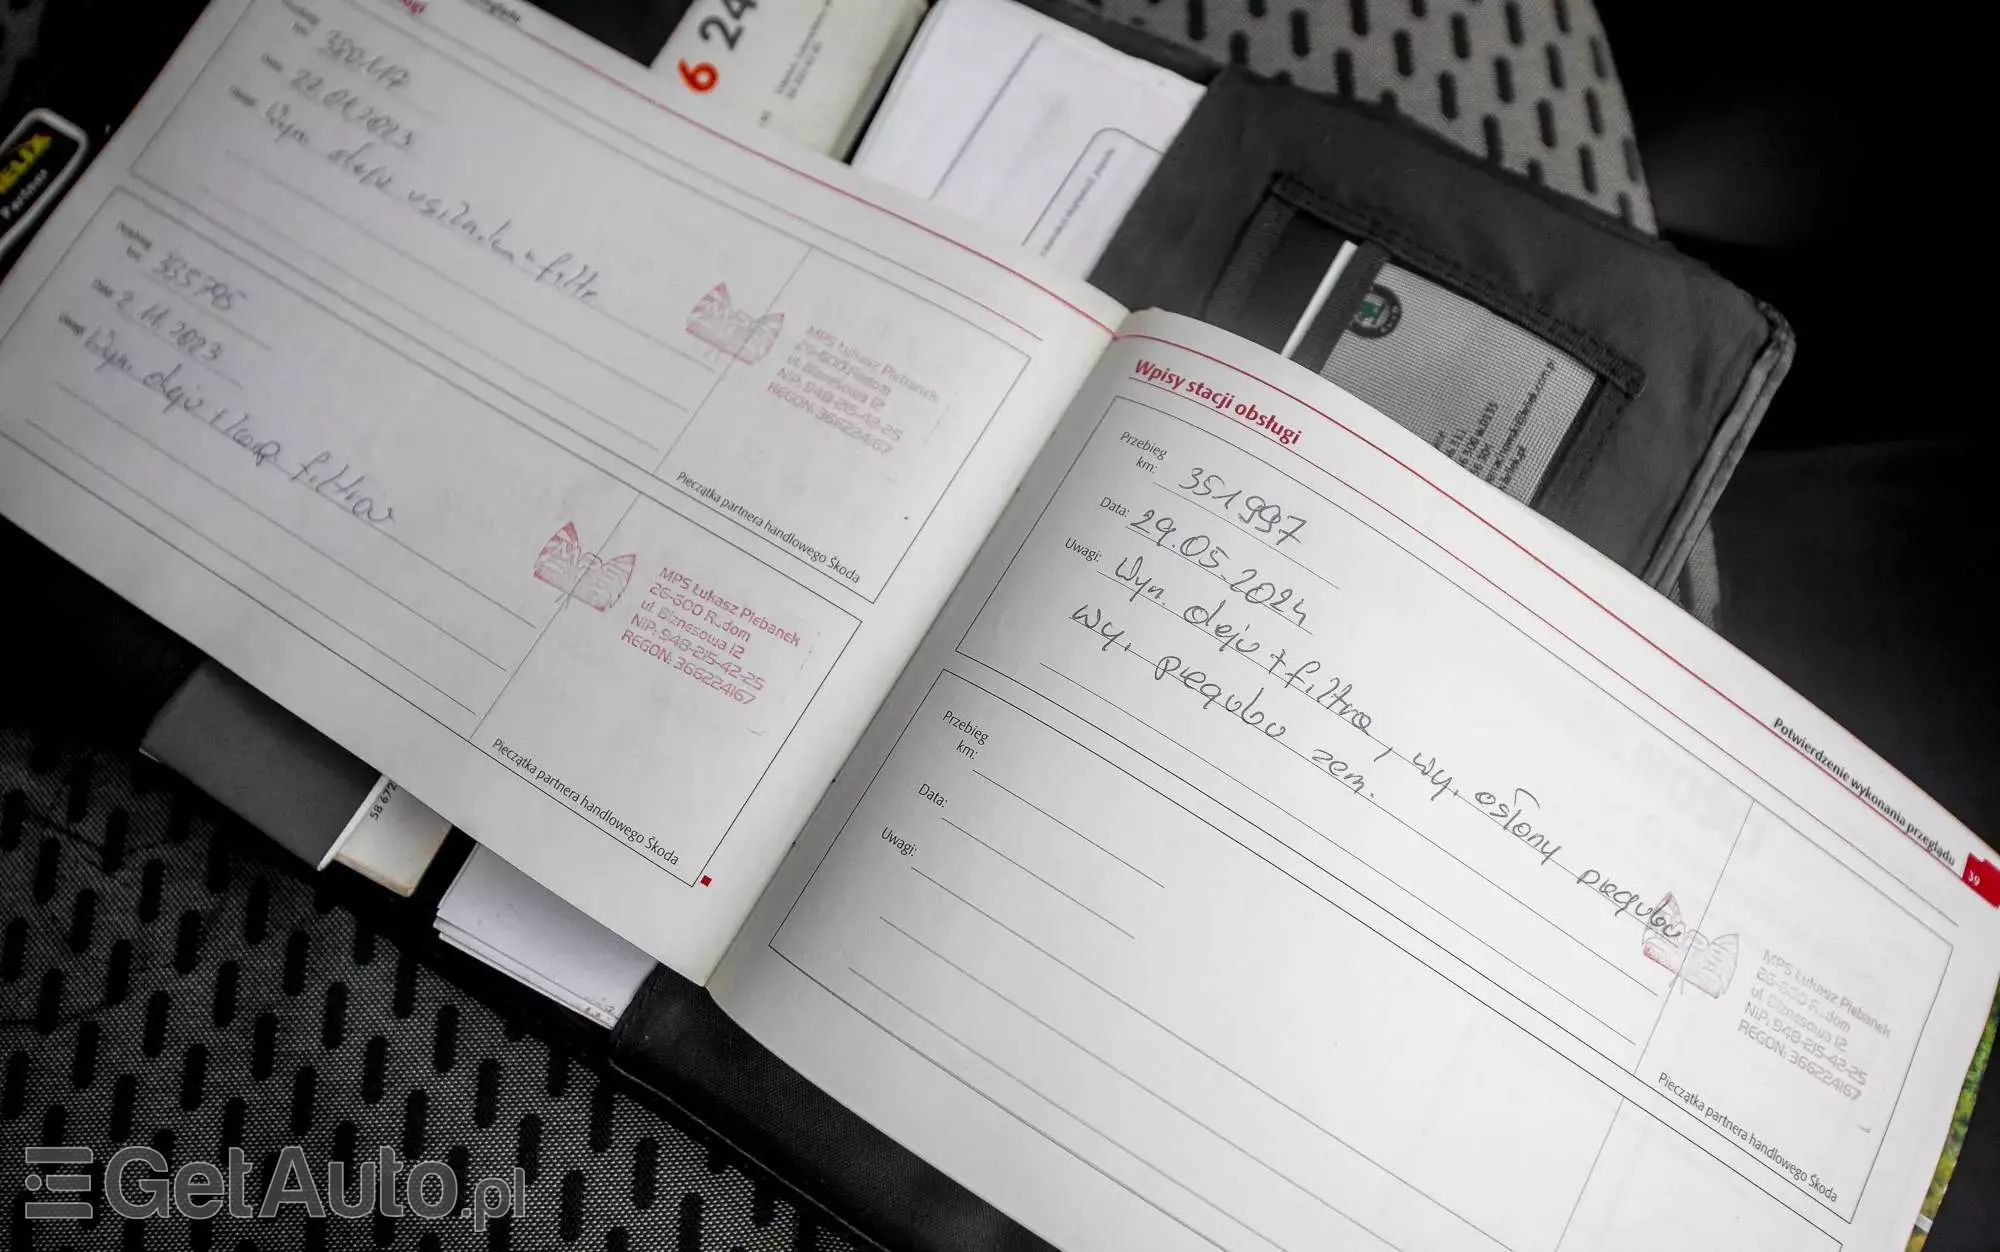 6 24
HELIX
Partner
Przebieg
km:
Data: 22.01.2023
Uwagi: Wym. oleju
Przebieg
km: 335795
Data: 2.11.2023
Uwagi: Wym. oleju + filtrów
MPS Łukasz Plebanek
26-600 Radom
ul. Biznesowa 12
NIP: 948-215-42-25
REGON: 366224167
Pieczątka partnera handlowego Škoda
MPS Łukasz Plebanek
26-600 R dom
ul. Biznesowa 12
NIP: 948-215-42-25
REGON: 366224167
Pieczątka partnera handlowego Škoda
58 672
Wpisy stacji obsługi
Przebieg
km: 351997
Data: 29.05.2024
Uwagi: Wym. oleju + filtra, wy. osłony przegubu
wy. przegubu zew.
MPS Łukasz Plebanek
26-600 R dom
ul. Biznesowa 12
NIP: 948-215-42-25
REGON: 366224167
Pieczątka partnera handlowego Škoda
Przebieg
km:
Data:
Uwagi:
Potwierdzenie wykonania przeglądu
39
GetAuto.pl